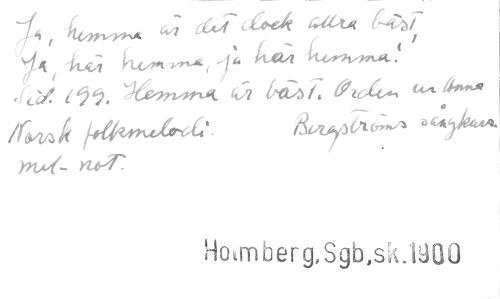 Ja, hemma är det dock allra bäst,
Ja, här hemma, ja här hemma!
Sid. 199. Hemma är bäst. Orden ur Anna
Norsk folkmelodi. Bergströms sångkurs.
mel-not.
Holmberg, Sgb, sk. 1900